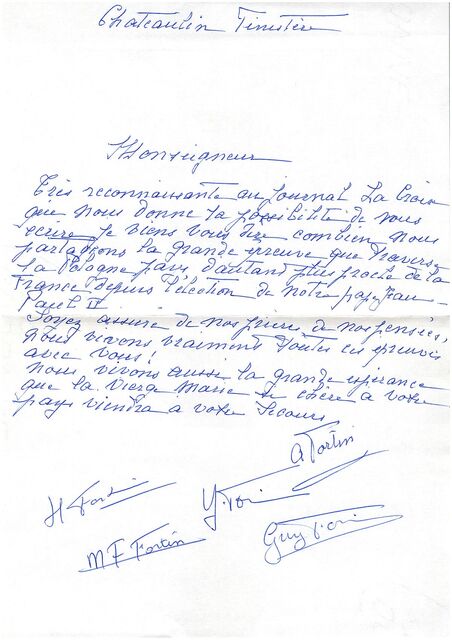 Chateaulin Finistère
Monseigneur
Très reconnaissante au journal La Croix
que nous donne la possibilité de vous
écrire je viens vous dire combien nous
partageons la grande épreuve que traverse
la Pologne pays d'autant plus proche de la
France depuis l'élection de notre pape Jean-
Paul II.
Soyez assuré de nos prières, de nos pensées,
nous vivons vraiment toutes ces épreuves
avec vous!
nous vivons aussi la grande espérance
que la Vierge Marie si chère à votre
pays viendra à votre secours
A Fortin
H Fortin
M F Fortin
Guy